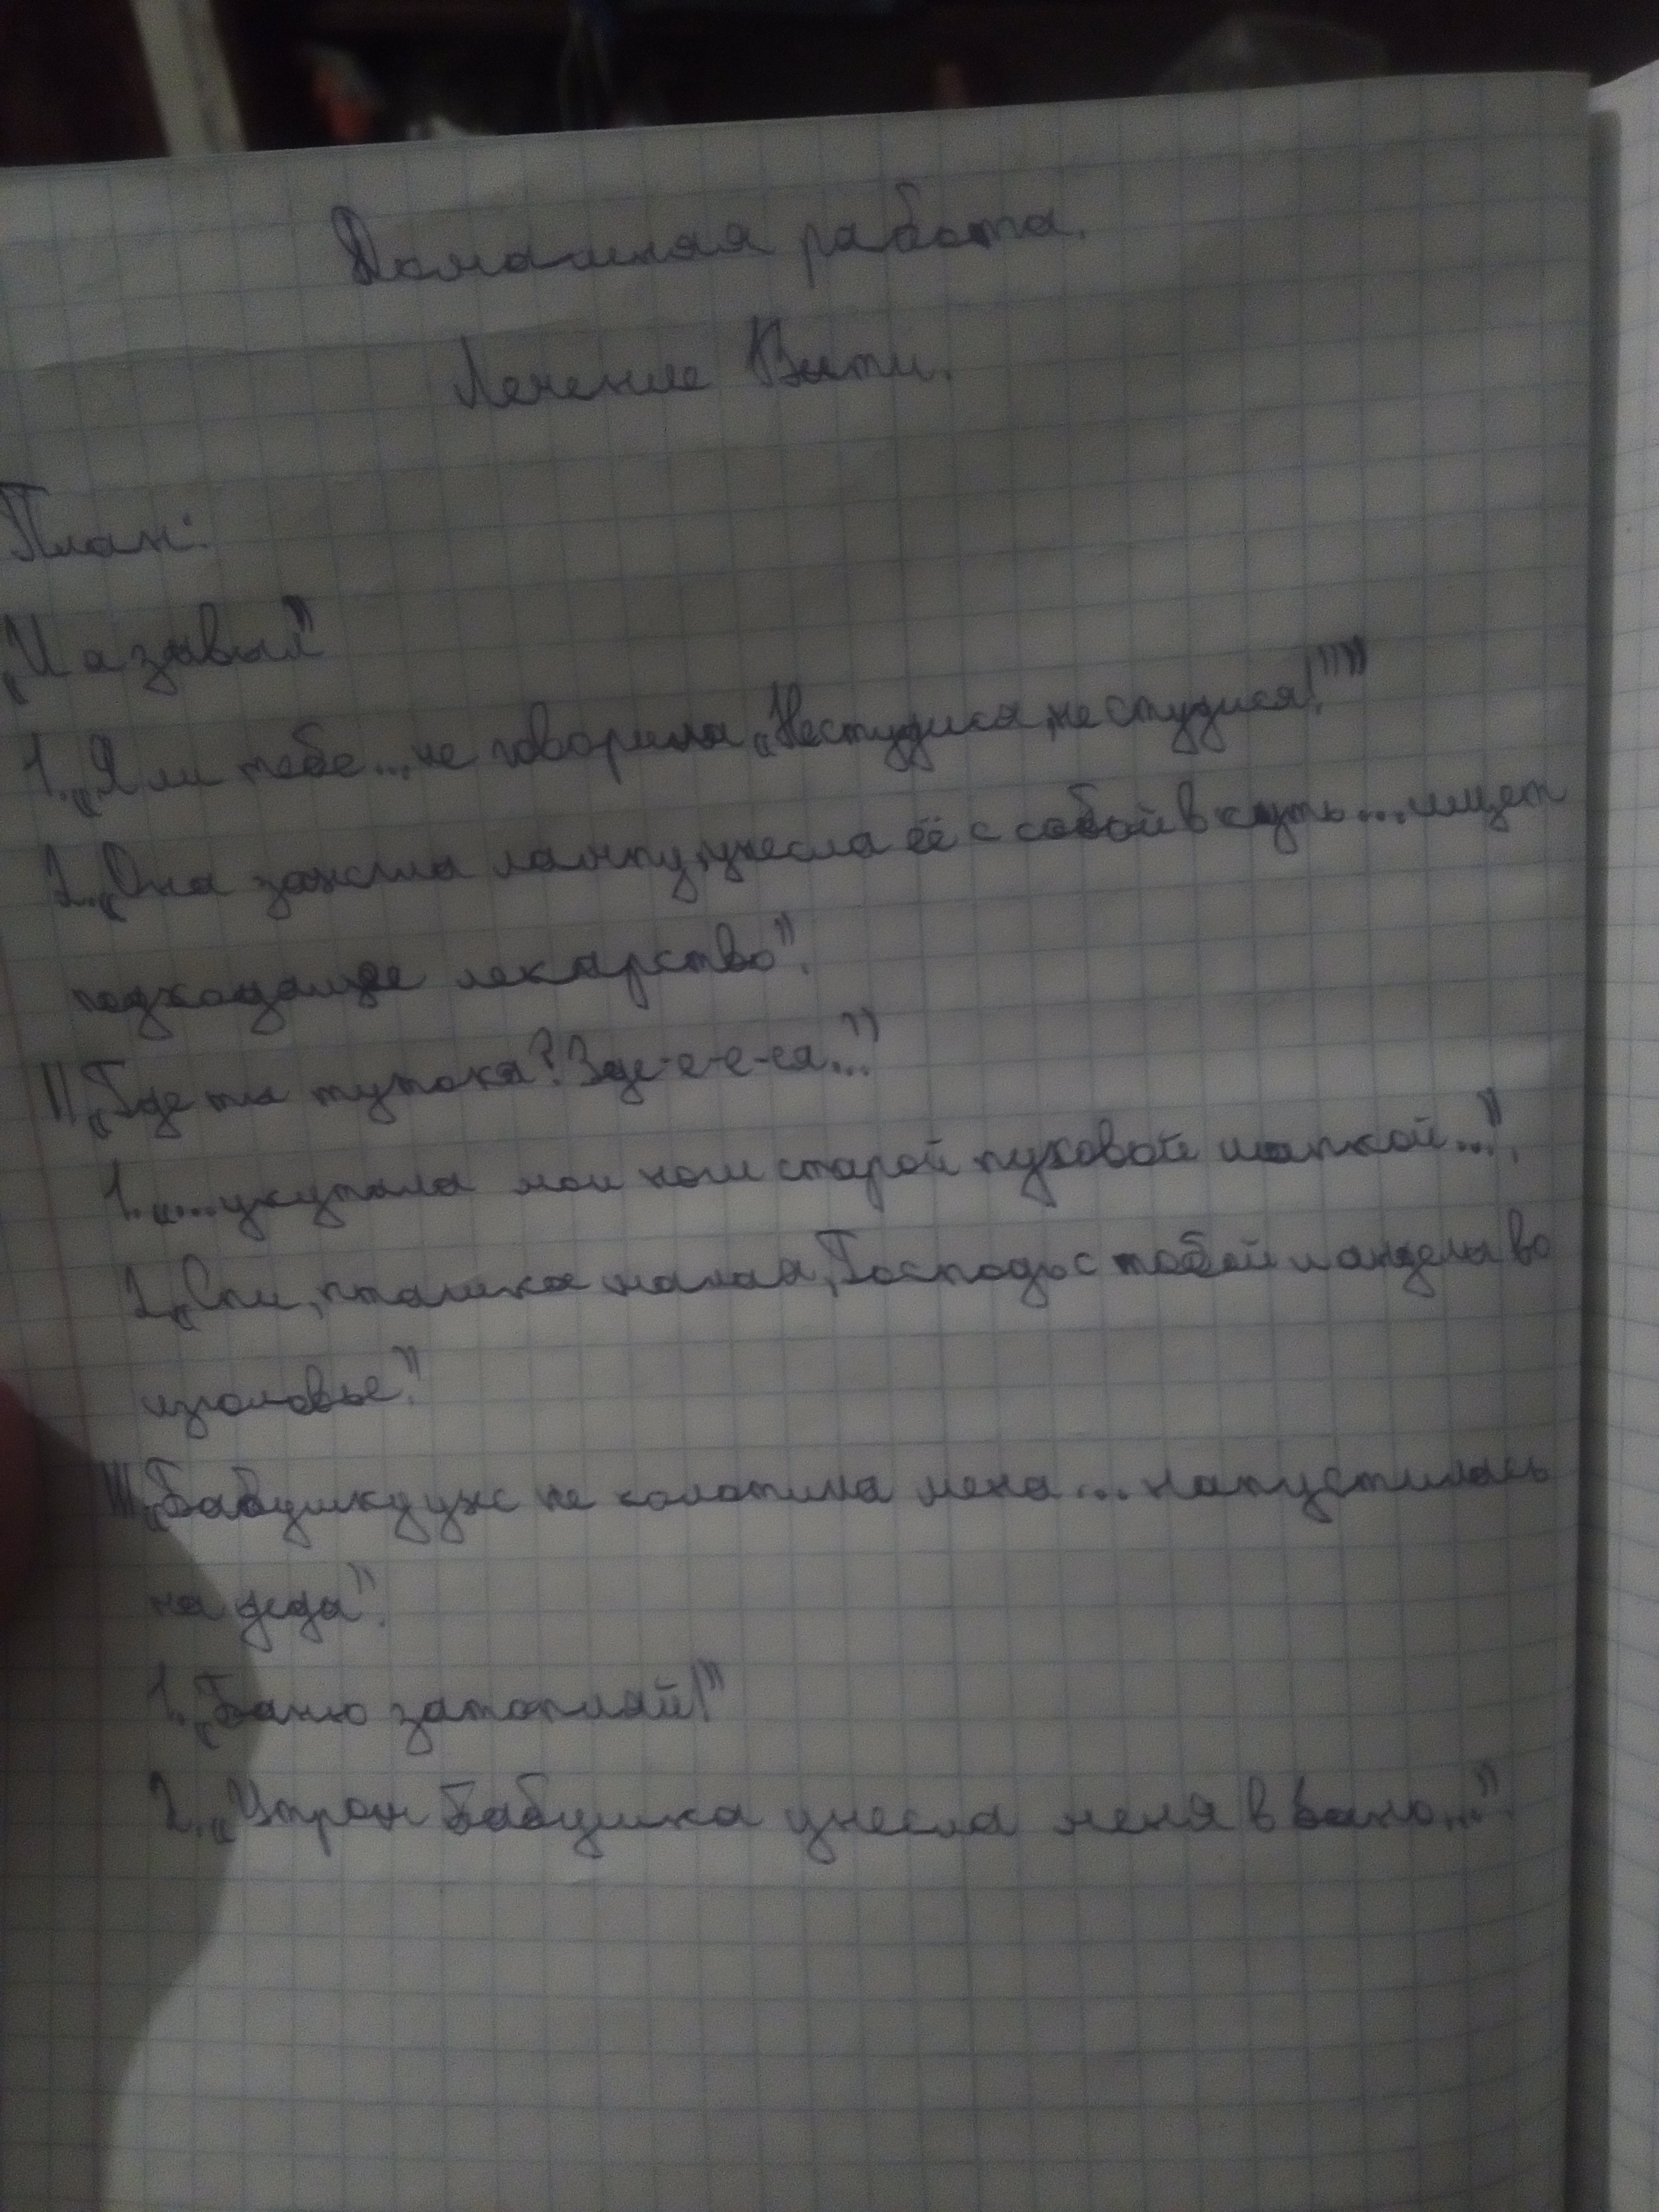 Домашняя работа.
Лечение Вити.
План:
„И я завыл"
1. „Я ли тебе... не говорила „Не студися, не студися!""
2. „Она зажгла лампу, унесла её с собой в куть... ищет
подходящее лекарство".
II „Где ты тутока? Зде-е-е-ся..."
1. „...укутала мои ноги старой пуховой шапкой...".
2. „Спи, пташка малая, Господь с тобой и анделы во
изголовье."
III. „Бабушку уж не колотила меня... напустилась
на деда".
1. „Баню затопляй!"
2. „Утром бабушка унесла меня в баню...".